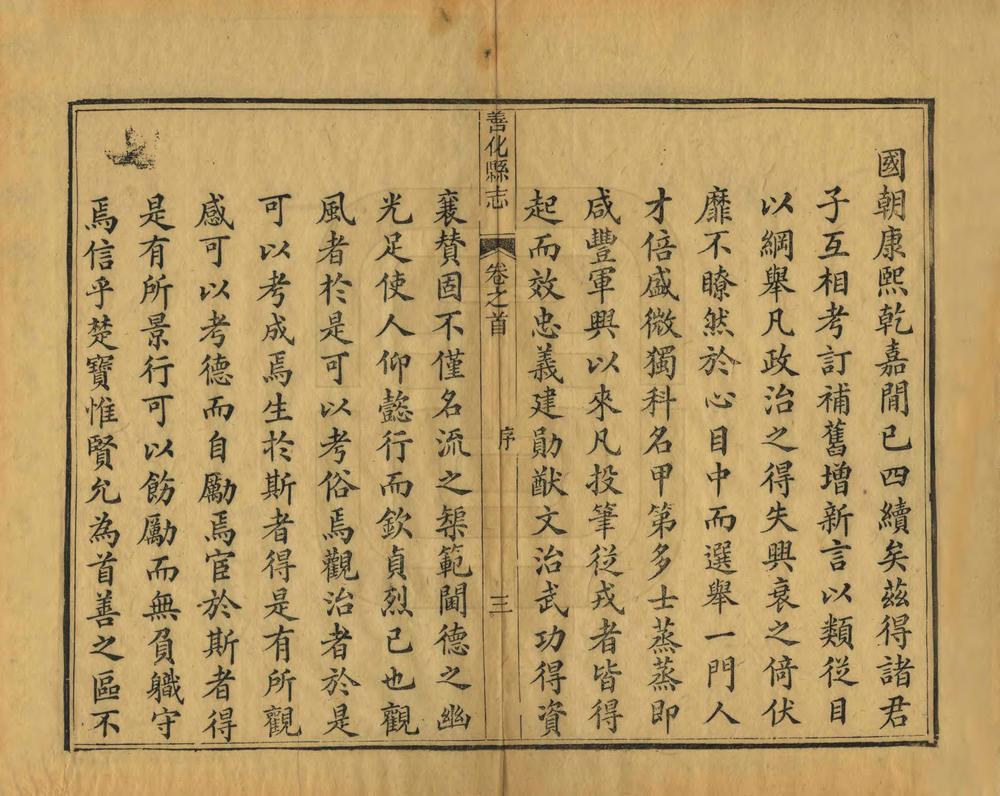 國朝康熙乾嘉閒已四續矣茲得諸君
子互相考訂補舊增新言以類從目
以綱舉凡政治之得失興衰之倚伏
靡不瞭然於心目中而選舉一門人
才倍盛微獨科名甲第多士蒸蒸即
咸豐軍興以來凡投筆從戎者皆得
起而效忠義建勛猷文治武功得資
善化縣志
卷之首
序
三
襄贊固不僅名流之榘範閫德之幽
光足使人仰懿行而欽貞烈已也觀
風者於是可以考俗焉觀治者於是
可以考成焉生於斯者得是有所觀
感可以考德而自勵焉宦於斯者得
是有所景行可以飭勵而無負職守
焉信乎楚寶惟賢允為首善之區不